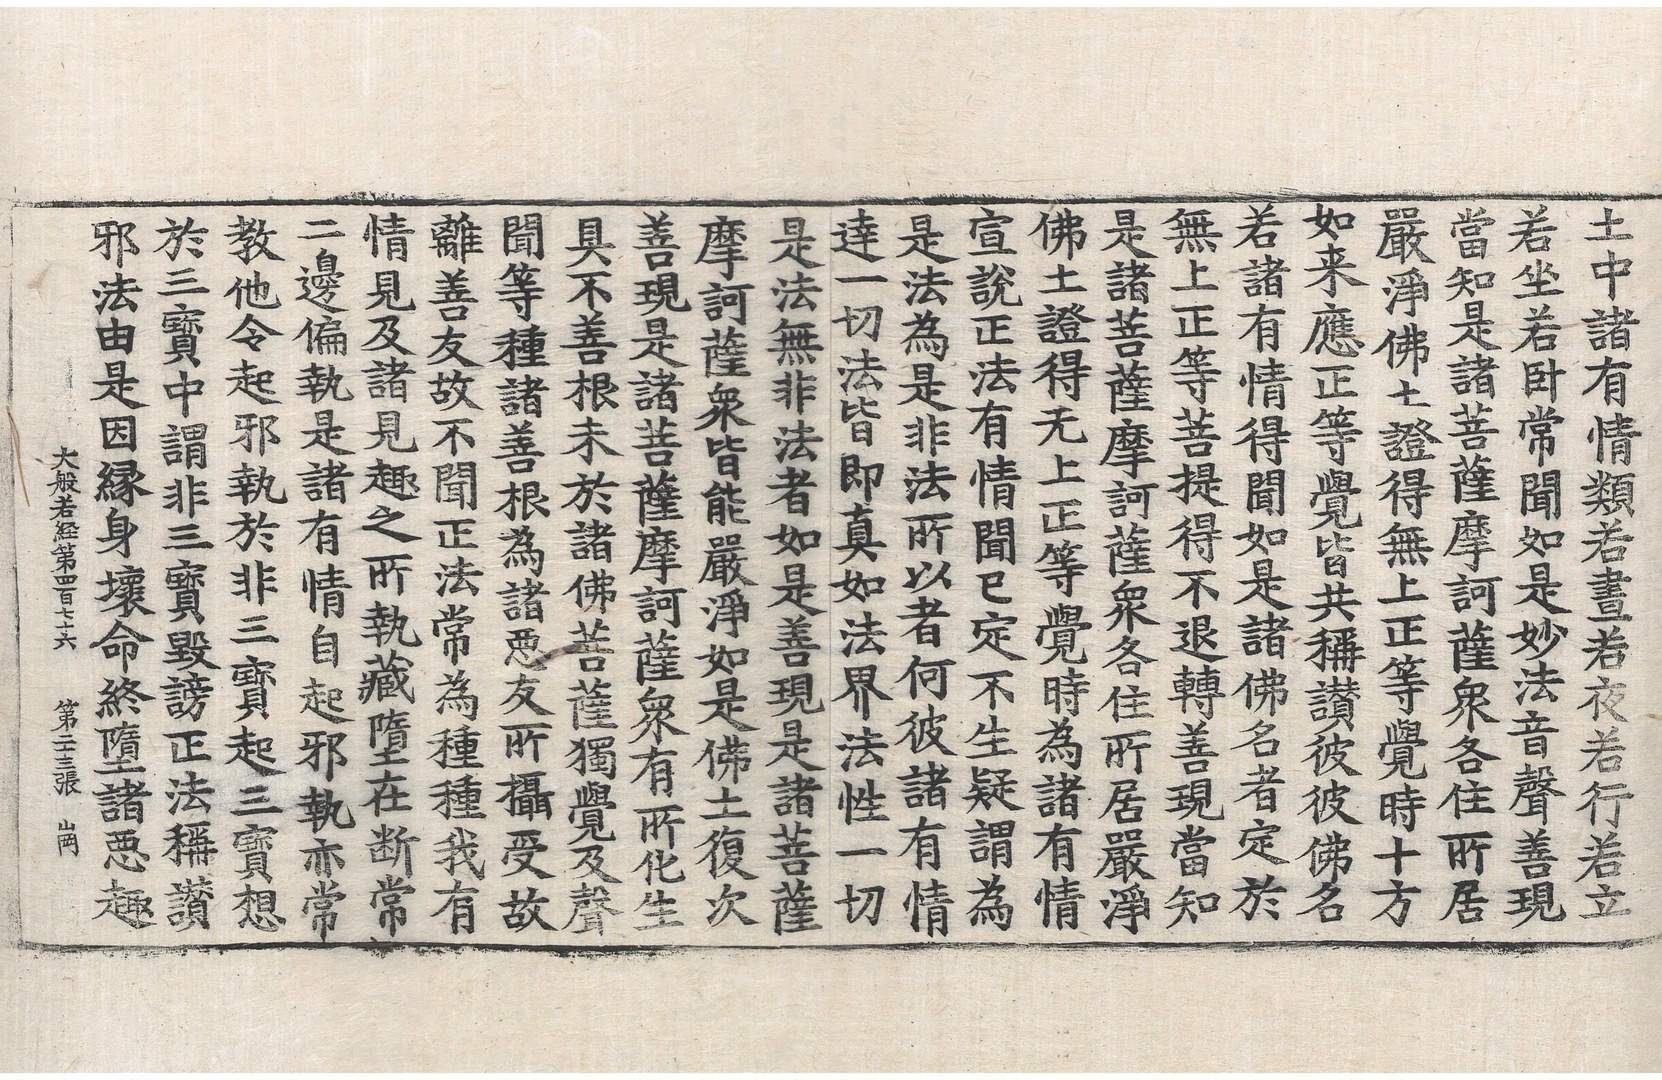 土中諸有情類若晝若夜若行若立
若坐若卧常聞如是妙法音聲善現
當知是諸菩薩摩訶薩衆各住所居
嚴淨佛土證得無上正等覺時十方
如来應正等覺皆共稱讃彼彼佛名
若諸有情得聞如是諸佛名者定於
無上正等菩提得不退轉善現當知
是諸菩薩摩訶薩衆各住所居嚴淨
佛土證得无上正等覺時為諸有情
宣說正法有情聞已定不生疑謂為
是法為是非法所以者何彼諸有情
達一切法皆即真如法界法性一切
是法無非法者如是善現是諸菩薩
摩訶薩衆皆能嚴淨如是佛土復次
善現是諸菩薩摩訶薩衆有所化生
具不善根未於諸佛菩薩獨覺及聲
聞等種諸善根為諸惡友所攝受故
離善友故不聞正法常為種種我有
情見及諸見趣之所執藏墮在断常
二邊偏執是諸有情自起邪執亦常
教他令起邪執於非三寶起三寶想
於三寶中謂非三寶毀謗正法稱讃
邪法由是因縁身壞命終墮諸惡趣
大般若経第四百七十六 第二十三張 山岡